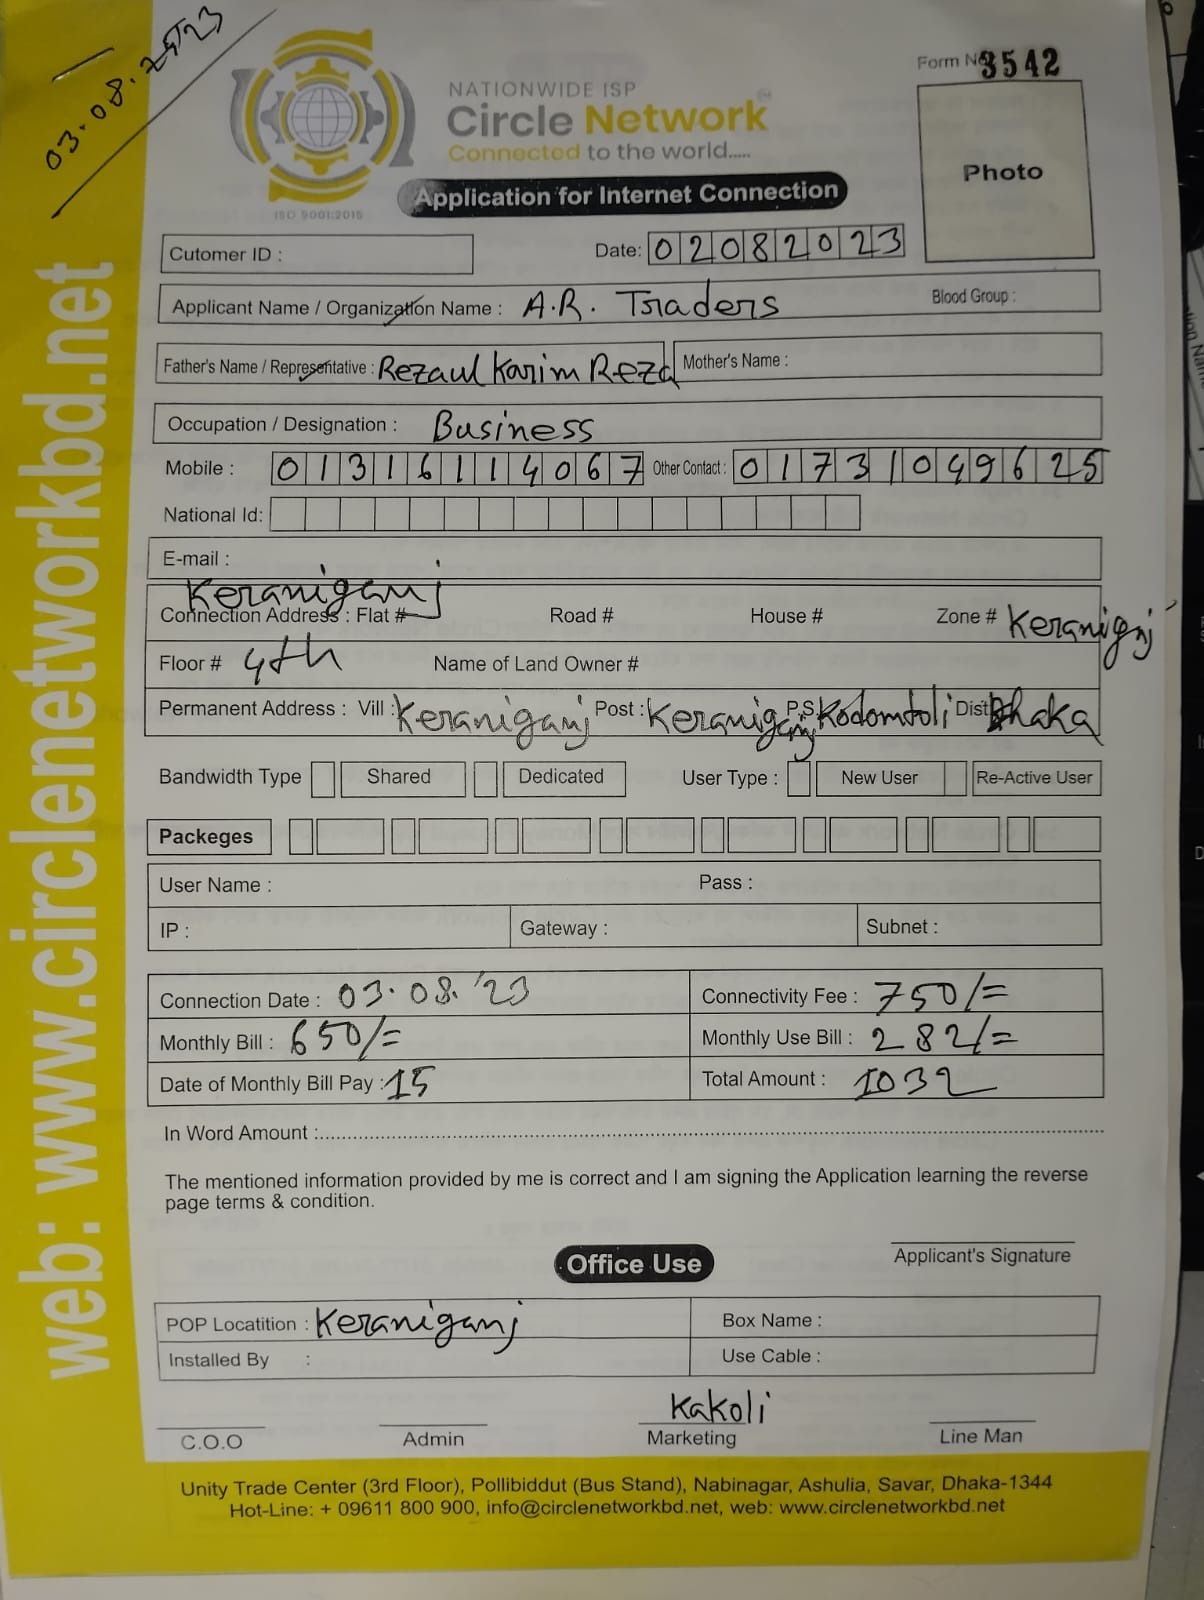 03.08.2023
Form No 3542
NATIONWIDE ISP
Circle Network
Connected to the world.....
ISO 9001:2015
Photo
Application for Internet Connection
Cutomer ID :
Date: 02082023
Applicant Name / Organization Name : A.R. Traders Blood Group :
Father's Name / Representative : Rezaul Karim Reza Mother's Name :
Occupation / Designation : Business
Mobile : 01316114067 Other Contact : 01731049625
National Id:
E-mail :
Keraniganj
Connection Address : Flat # Road # House # Zone # Keraniganj
Floor # 4th Name of Land Owner #
Permanent Address : Vill : Keraniganj Post : Keraniganj P.S Kodomtoli Dist Dhaka
Bandwidth Type Shared Dedicated User Type : New User Re-Active User
Packeges
User Name : Pass :
IP : Gateway : Subnet :
Connection Date : 03.08.'23 Connectivity Fee : 750/=
Monthly Bill : 650/= Monthly Use Bill : 282/=
Date of Monthly Bill Pay : 15 Total Amount : 1032
In Word Amount :
The mentioned information provided by me is correct and I am signing the Application learning the reverse
page terms & condition.
Applicant's Signature
Office Use
POP Locatition : Keraniganj Box Name :
Installed By : Use Cable :
Kakoli
C.O.O Admin Marketing Line Man
Unity Trade Center (3rd Floor), Pollibiddut (Bus Stand), Nabinagar, Ashulia, Savar, Dhaka-1344
Hot-Line: + 09611 800 900, info@circlenetworkbd.net, web: www.circlenetworkbd.net
web: www.circlenetworkbd.net